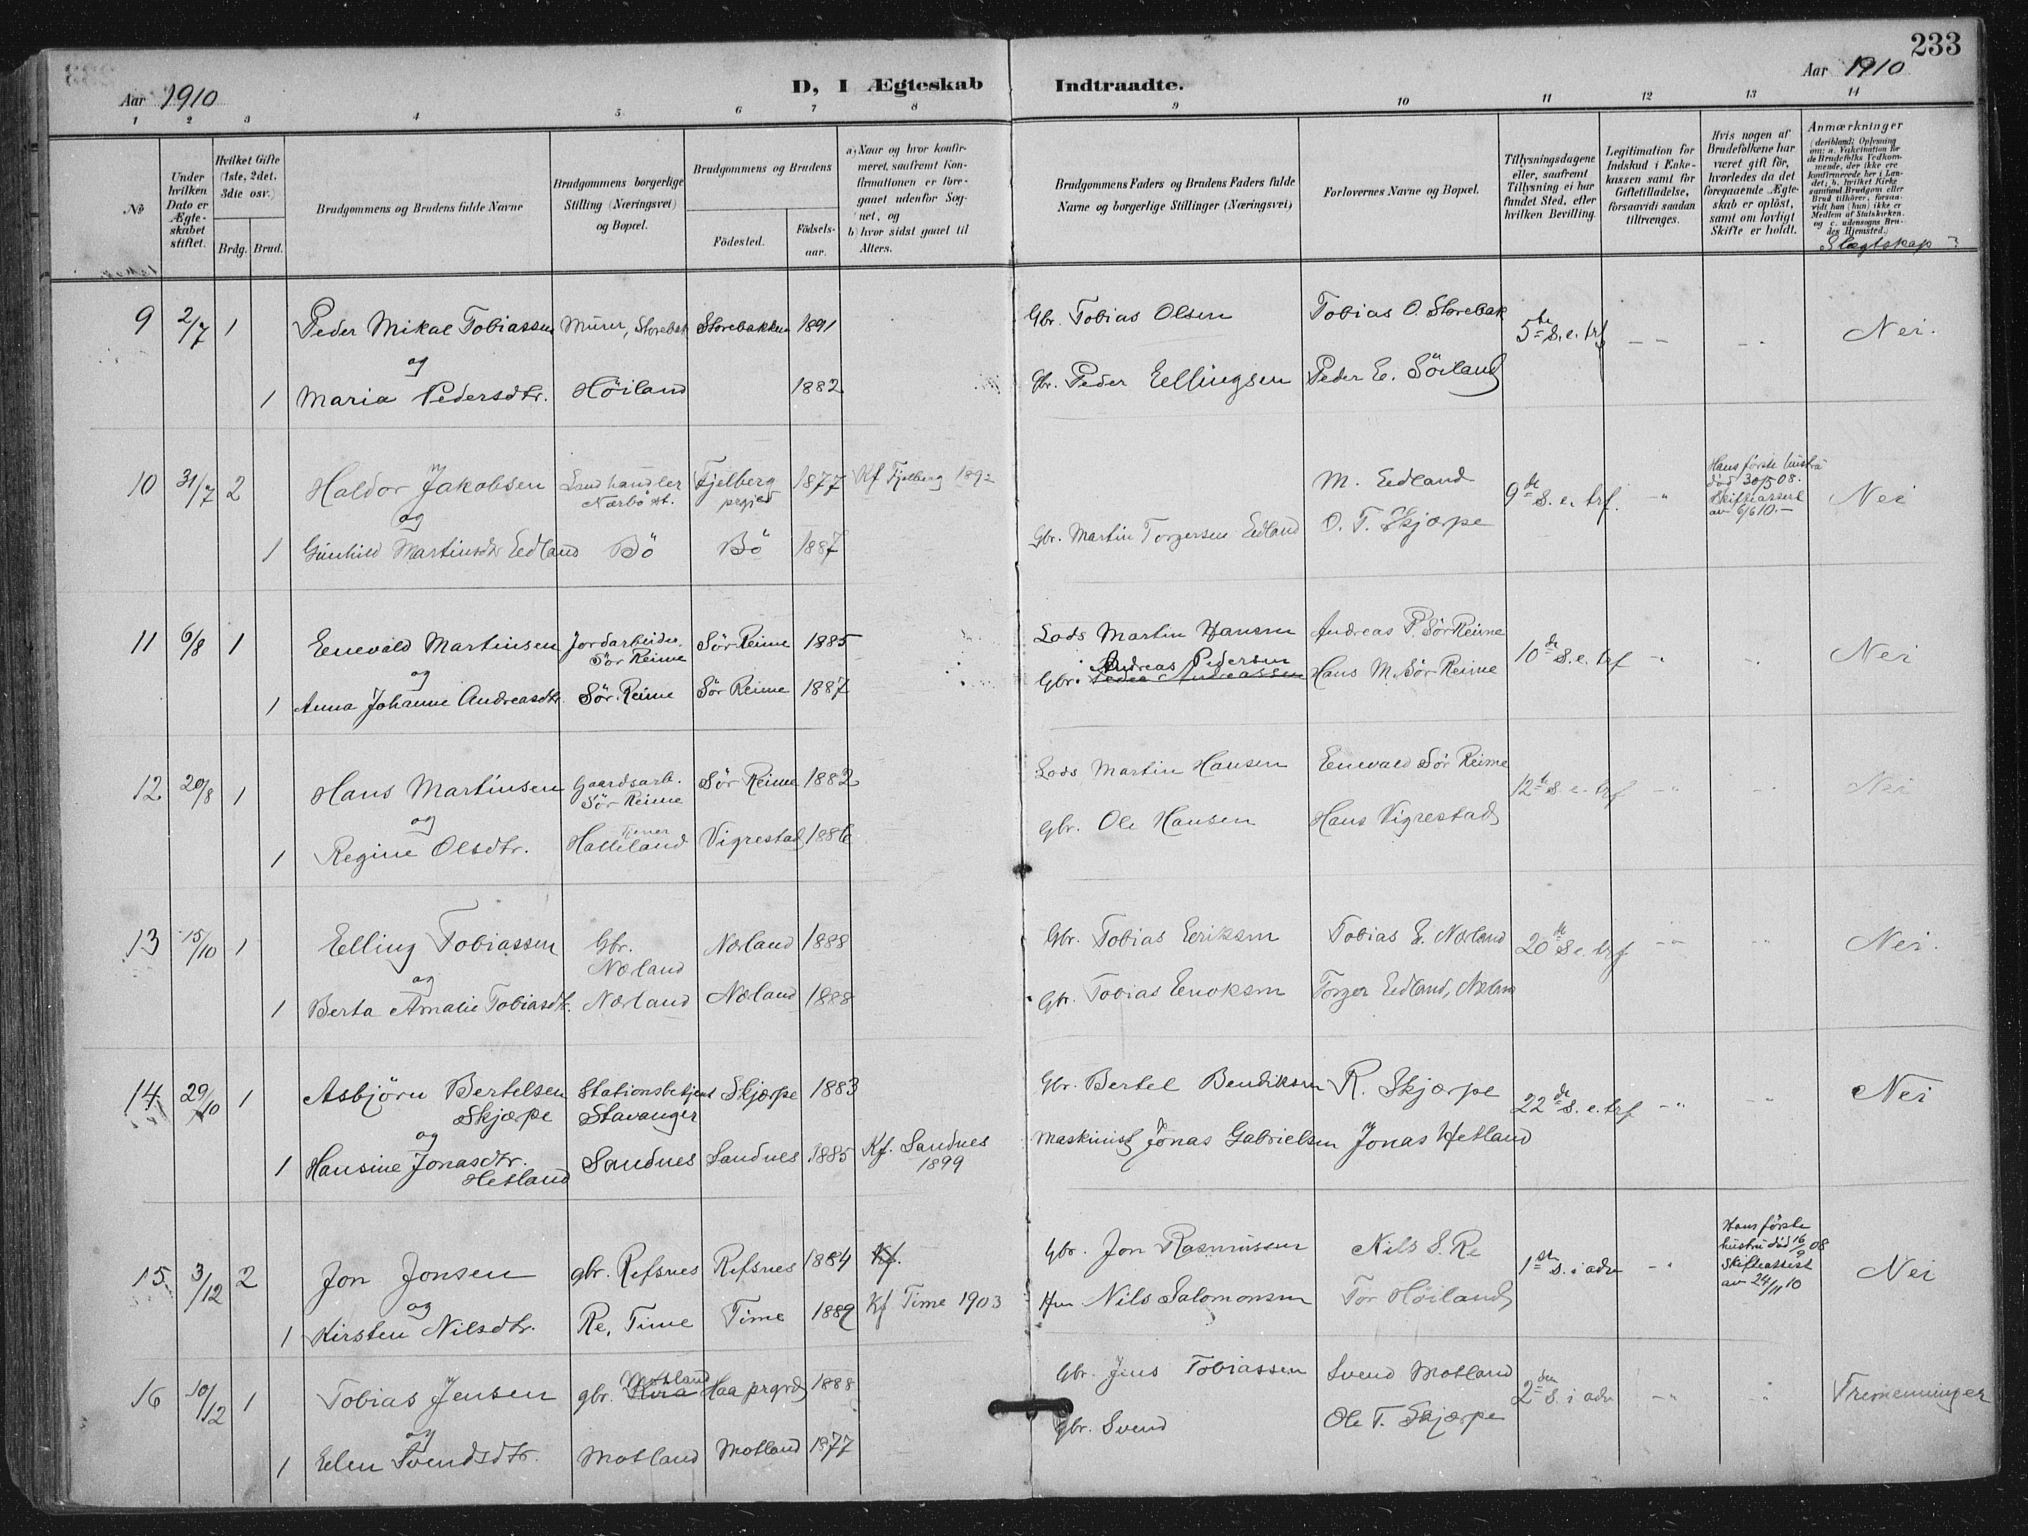 233
Aar 1910
D, I Ægteskab Indtraadte.
Aar 1910
1 2 3 4 5 6 7 8 9 10 11 12 13 14
No
Under hvilken Dato er Ægteskabet stiftet.
Hvilket Gifte (1ste, 2det, 3die osv.)
Brdg. Brud.
Brudgommens og Brudens fulde Navne
Brudgommens borgerlige Stilling (Næringsvei) og Bopæl.
Brudgommens og Brudens
Fødested.
Fødselsaar.
a) Naar og hvor konfirmeret, saafremt Konfirmationen er foregaaet udenfor Sognet, og
b) hvor sidst gaaet til Alters.
Brudgommens Faders og Brudens Faders fulde Navne og borgerlige Stillinger (Næringsvei)
Forlovernes Navne og Bopæl.
Tillysningsdagene eller, saafremt Tillysning ei har fundet Sted, efter hvilken Bevilling.
Legitimation for Indskud i Enkekassen samt for Giftetilladelse, forsaavidt saadan tiltrænges.
Hvis nogen af Brudefolkene har været gift før, hvorledes da det foregaaende Ægteskab er opløst, samt om lovligt Skifte er holdt.
Anmærkninger
(deriblandt Oplysning om: a. Vakcination for de Brudefolks Vedkommende, der ikke ere konfirmerede her i Landet; b. hvilket Kirkesamfund Brudgom eller Brud tilhører, forsaavidt han (hun) ikke er Medlem af Statskirken, og c. udensogns Brudes Hjemsted.)
Slægtskap?
9 2/7 1 Peder Mikal Tobiassen Murer, Storebak Storebakken 1891 Gbr. Tobias Olsen Tobias O. Storebak 5te S. e. trf Nei.
og
1 Maria Pedersdtr. Høiland 1882 Gbr. Peder Ellingsen Peder E.
10 31/7 2 Haldor Jakobsen Landhandler Nærbø st. Fjelberg prgjed 1877 Kf Fjelberg 1892 M. Eedland 9de S. e. trf. Hans første hustru død 30/5 08. Skifteattest av 6/6 10.- Nei
og
1 Gunhild Martinsdtr Eedland Bö Bö 1887 Gbr. Martin Torgersen Eedland O. T. Skjærpe
11 6/8 1 Enevald Martinsen Jordarbeider. Sör Reime Sör Reime 1885 Lods Martin Hansen Andreas P. Sör Reime 10de S. e. trf Nei
og
1 Anna Johanne Andreasdtr. Sör. Reime Sör Reime 1887 Gbr. Andreas Pedersen Peder Andreassen Hans M. Sör Reime
12 20/8 1 Hans Martinsen Gaardsarb. Sör Reime Sör Reime 1882 Lods Martin Hansen Enevald Sör Reime 12te S. e. trf Nei
og
1 Regine Olsdtr. tjener Hatteland Vigrestad 1886 Gbr. Ole Hansen Hans Vigrestad
13 15/10 1 Elling Tobiassen Gbr. Nærland Nærland 1888 Gbr. Tobias Eriksen Tobias E. Nærland 20de S e. trf Nei.
og
1 Berta Amalie Tobiasdtr. Nærland Nærland 1888 Gbr. Tobias Enoksen Torger Eedland, Nærland
14 29/10 1 Asbjörn Bertelsen Skjærpe Stationsbetjent Stavanger Skjærpe 1883 Gbr. Bertel Bendiksen R. Skjærpe 22de S. e. trf Nei
og
1 Hansine Jonasdtr. Hetland Sandnes Sandnes 1885 Kf. Sandnes 1899 Maskinist Jonas Gabrielsen Jonas Hetland
15. 3/12 2 Jon Jonsen gbr. Refsnes Refsnes 1884 Kf. Gbr. Jon Rasmussen Nils S. Re 1ste S. i adv Hans første hustru død 16/9 08 Skifteattest av 24/11 10 Nei
og
1 Kirsten Nilsdtr. Re, Time Time 1889 Kf Time 1903 Nils Salomonsen Tor Høiland
16 10/12 1 Tobias Jensen gbr. Motland Haa prgrd 1888 Gbr. Jens Tobiassen Svend Motland 2den S. i adv Tremenninger
og
1 Elen Svendsdtr. Motland Motland 1877 Gbr. Svend Ole T. Skjærpe